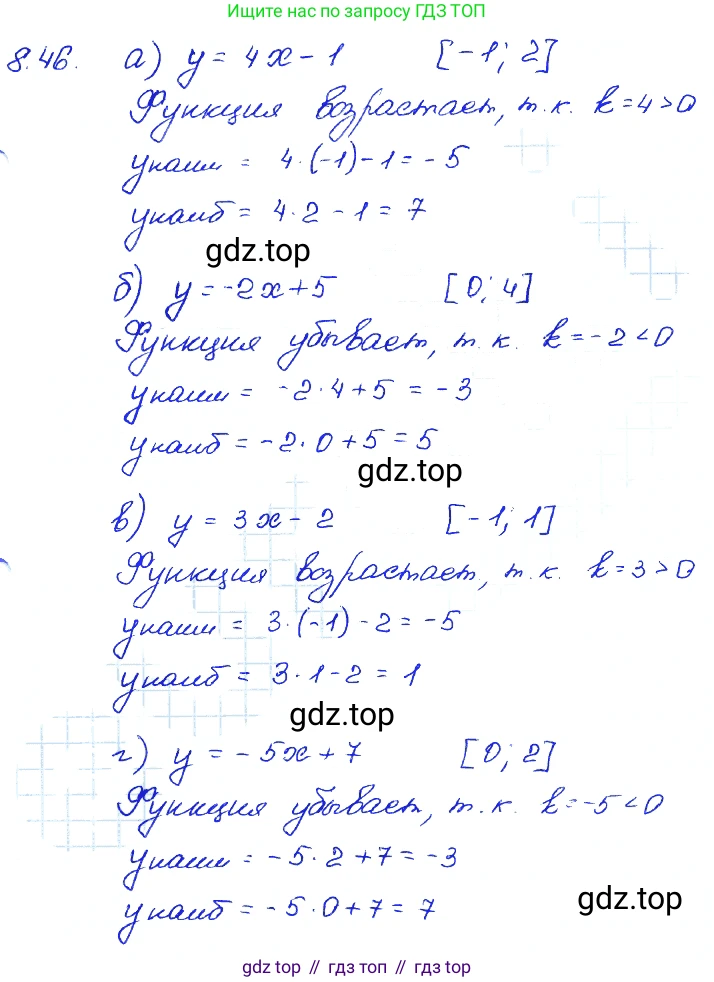 Ищите нас по запросу ГДЗ ТОП
8.46. а) y = 4x - 1 [-1; 2]
Функция возрастает, т.к. k=4>0
yнаим = 4·(-1)-1 = -5
yнаиб = 4·2 - 1 = 7
gdz.top
б) y = -2x+5 [0; 4]
Функция убывает, т.к. k=-2<0
yнаим = -2·4+5 = -3
yнаиб = -2·0+5 = 5
gdz.top
в) y = 3x - 2 [-1; 1]
Функция возрастает, т.к. k=3>0
yнаим = 3·(-1)-2 = -5
yнаиб = 3·1-2 = 1
gdz.top
г) y = -5x+7 [0; 2]
Функция убывает, т.к. k=-5<0
yнаим = -5·2+7 = -3
yнаиб = -5·0+7 = 7
gdz.top
gdz top // гдз топ // gdz.top